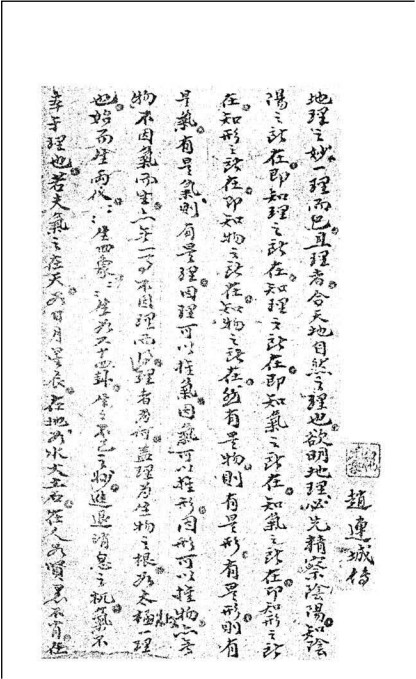 趙連城傳
地理之妙一理而已且理者合天地自然之理也欲明地理必先精察陰陽知陰
陽之所在即知理之所在知理之所在即知氣之所在知氣之所在即知形之所
在知形之所在即知物之所在知物之所在然有是物則有是形有是形則有
是氣有是氣則有是理因理可以推氣因氣可以推形因形可以推物亦無
物不因氣而生亦無一不因理而理者為何蓋理為生物之根如太極一理
也始而生兩儀〻生四象〻生為六十四卦生之不已之妙進退消息之機氣不
在于理也若夫氣之在天如日月星辰在地如水火土石在人如賢愚不肖